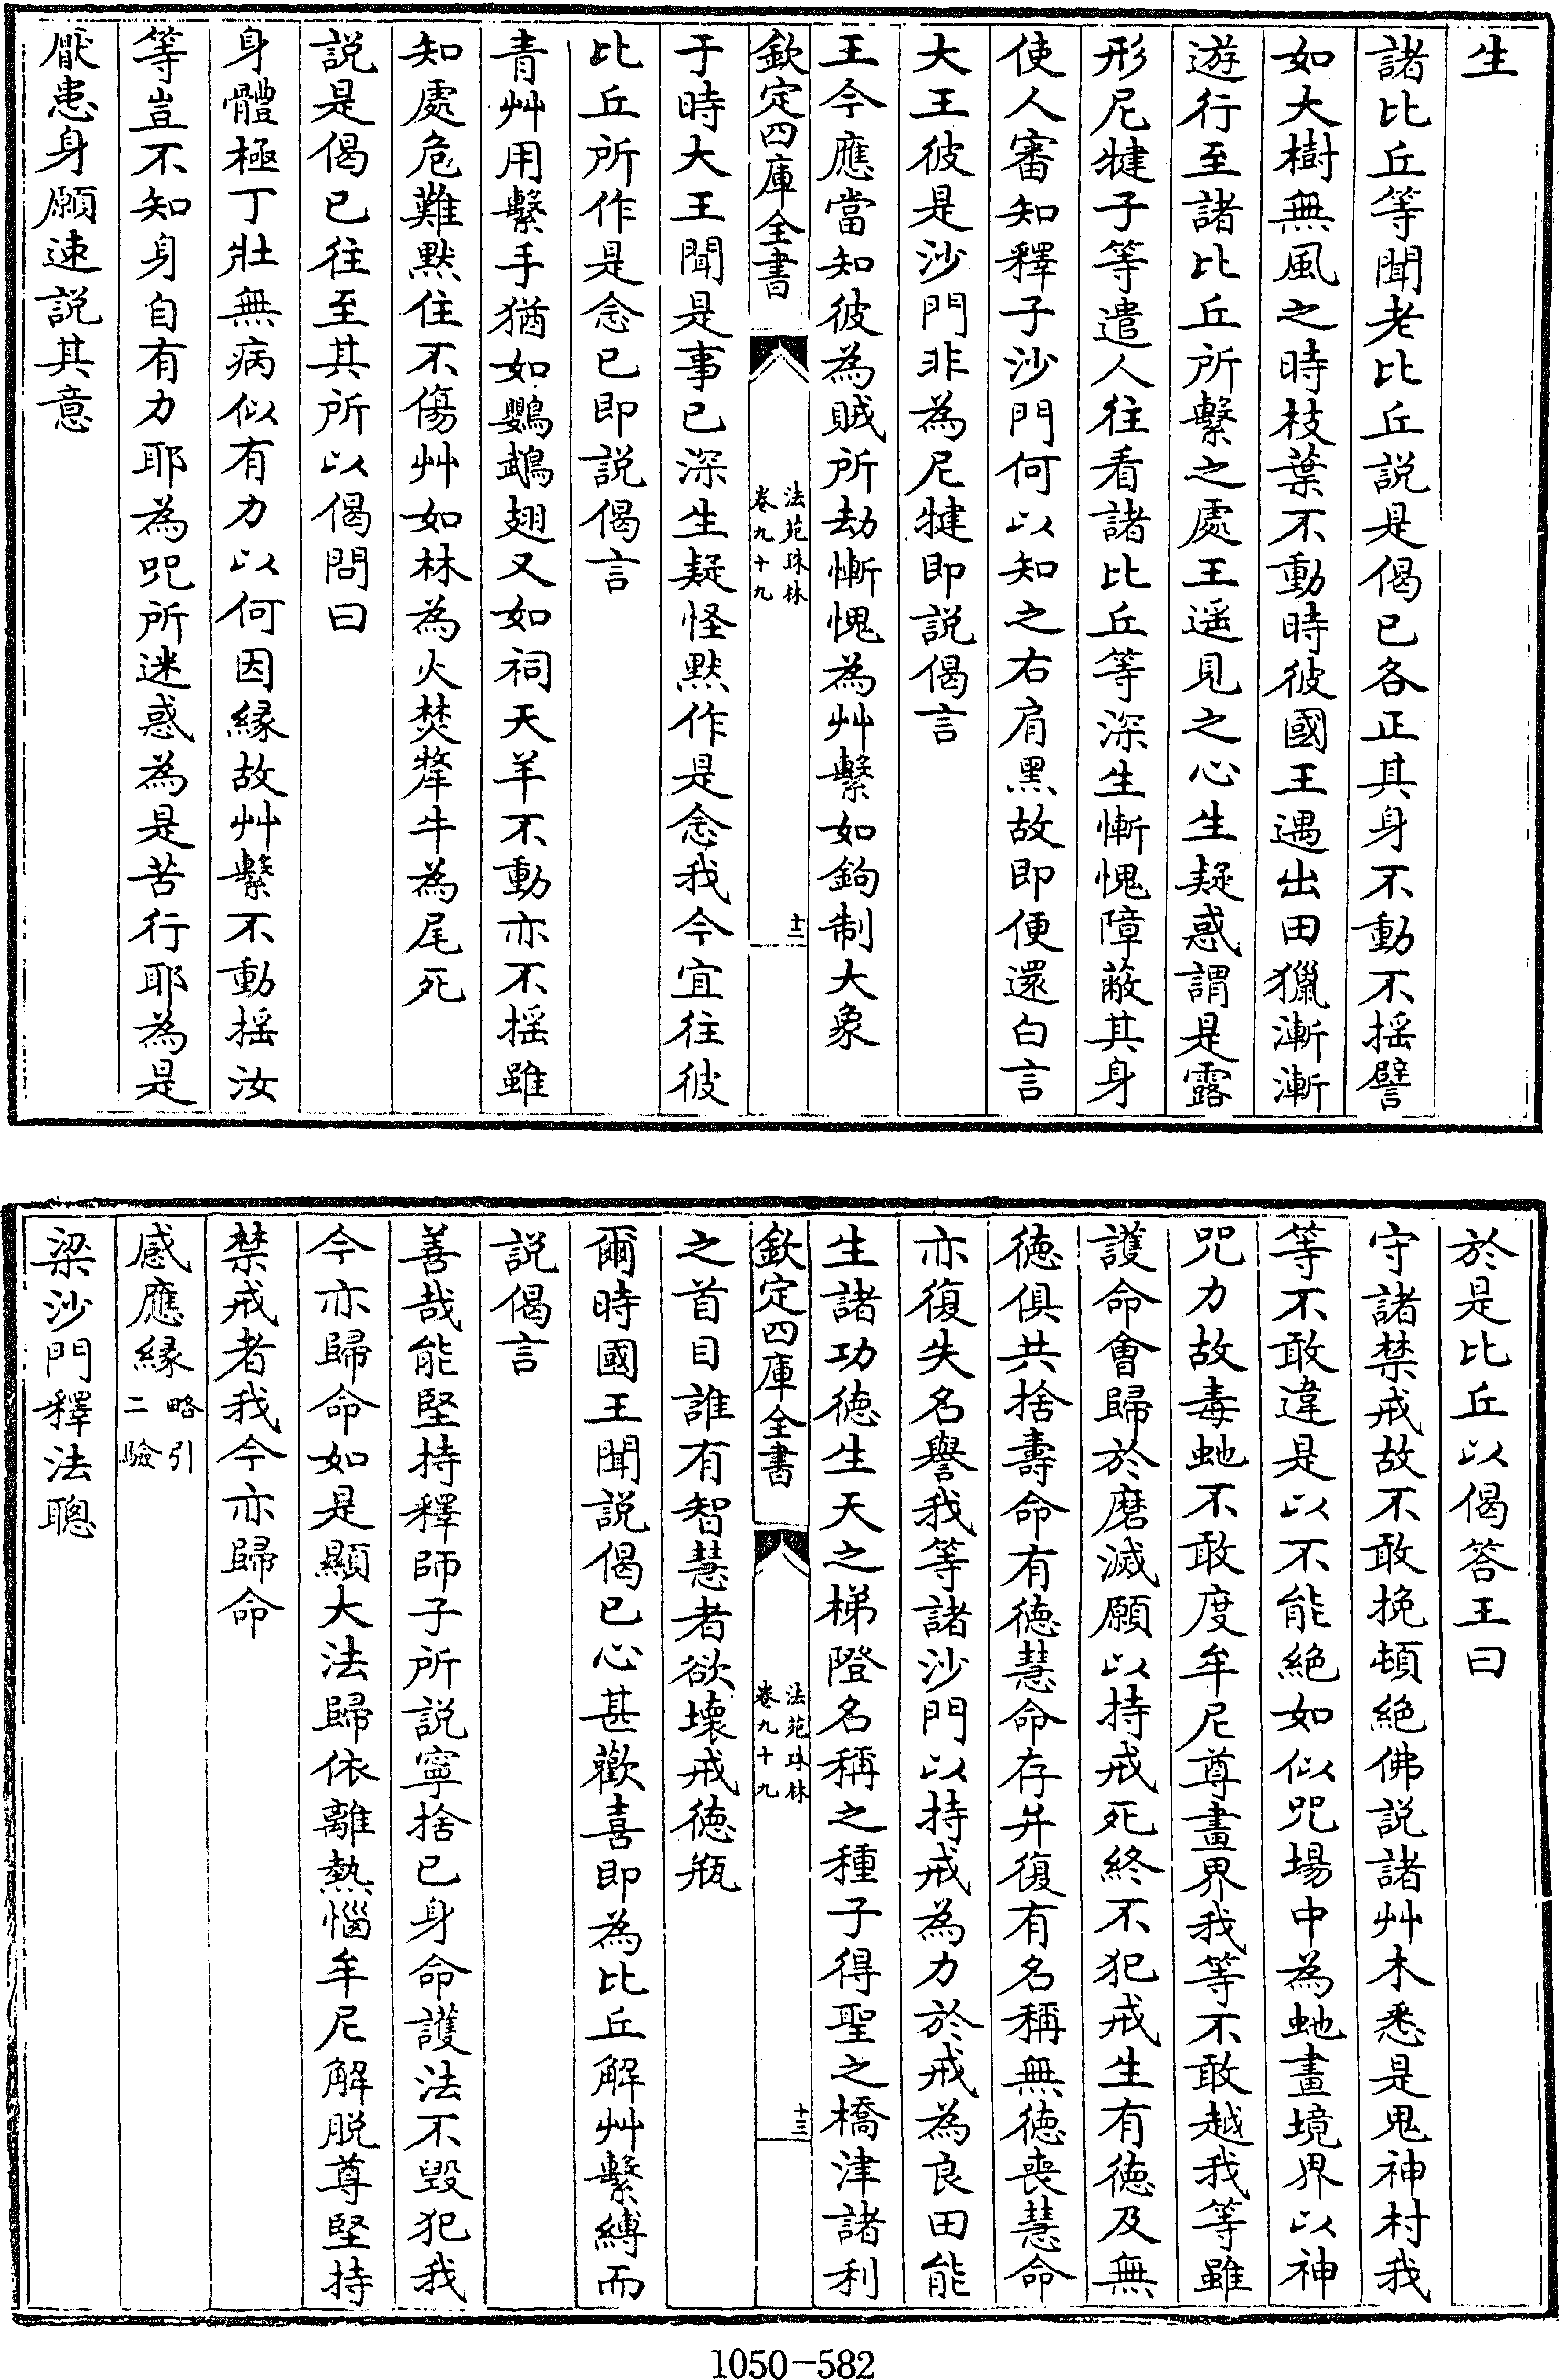 生
諸比丘等聞老比丘説是偈已各正其身不動不揺譬
如大樹無風之時枝葉不動時彼國王遇出田獵漸漸
遊行至諸比丘所繫之處王遥見之心生疑惑謂是露
形尼犍子等遣人往看諸比丘等深生慚愧障蔽其身
使人審知釋子沙門何以知之右肩黑故即便還白言
大王彼是沙門非為尼犍即説偈言
王今應當知彼為賊所劫慚愧為艸繫如鉤制大象
欽定四庫全書
法苑珠林
卷九十九
十二
于時大王聞是事已深生疑怪黙作是念我今宜往彼
比丘所作是念已即説偈言
青艸用繫手猶如鸚鵡翅又如祠天羊不動亦不揺雖
知處危難黙住不傷艸如林為火焚犛牛為尾死
説是偈已往至其所以偈問曰
身體極丁壯無病似有力以何因緣故艸繫不動揺汝
等豈不知身自有力耶為咒所迷惑為是苦行耶為是
厭患身願速説其意
於是比丘以偈答王曰
守諸禁戒故不敢挽頓絶佛説諸艸木悉是鬼神村我
等不敢違是以不能絶如似咒場中為虵畫境界以神
咒力故毒虵不敢度牟尼尊畫界我等不敢越我等雖
護命會歸於磨滅願以持戒死終不犯戒生有徳及無
徳俱共捨壽命有徳慧命存并復有名稱無徳喪慧命
亦復失名譽我等諸沙門以持戒為力於戒為良田能
生諸功徳生天之梯隥名稱之種子得聖之橋津諸利
欽定四庫全書
法苑珠林
卷九十九
十三
之首目誰有智慧者欲壞戒徳瓶
爾時國王聞説偈已心甚歡喜即為比丘解艸繫縛而
説偈言
善哉能堅持釋師子所説寧捨己身命護法不毀犯我
今亦歸命如是顯大法歸依離熱惱牟尼解脱尊堅持
禁戒者我今亦歸命
感應緣略引二驗
梁沙門釋法聰
1050-582